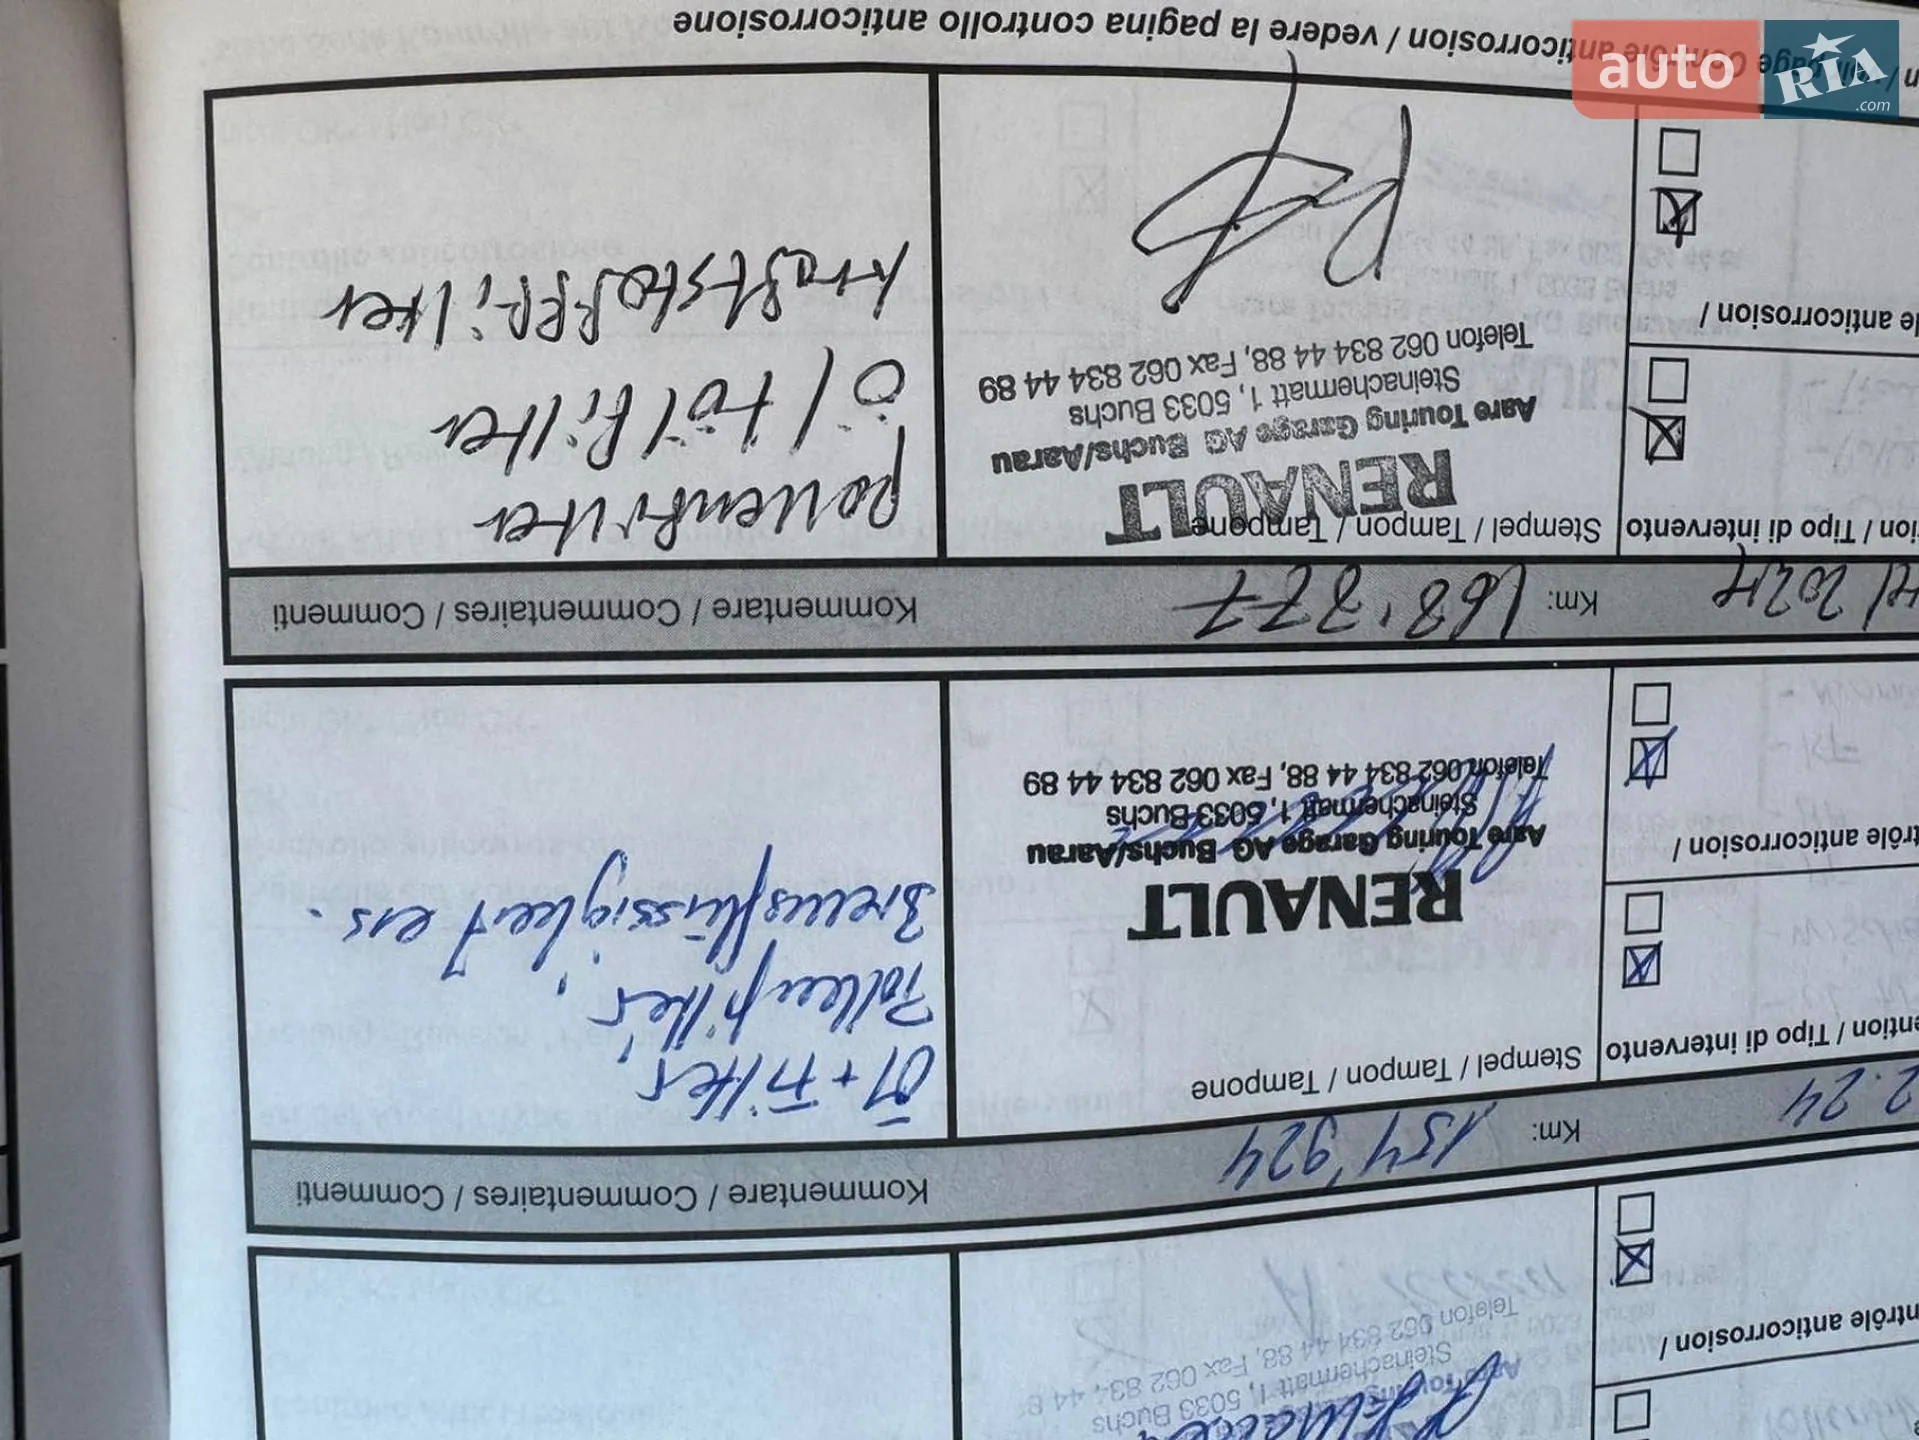 Telefon 062 834 44 88, Fax 062 834 44 8
Steinachermatt 1, 5033 Buchs
ntrôle anticorrosion /
2.24
Km: 154'924
Kommentare / Commentaires / Commenti
ention / Tipo di intervento
Stempel / Tampon / Tampone
Öl + Filter,
Pollenfilter,
Bremsflüssigkeit ers.
RENAULT
Aare Touring Garage AG Buchs/Aarau
Steinachermatt 1, 5033 Buchs
Telefon 062 834 44 88, Fax 062 834 44 89
trôle anticorrosion /
2024
Km: 168'377
Kommentare / Commentaires / Commenti
ion / Tipo di intervento
Stempel / Tampon / Tampone
pollenfilter
öl + ölfilter
kraftstofffilter
RENAULT
Aare Touring Garage AG Buchs/Aarau
Steinachermatt 1, 5033 Buchs
Telefon 062 834 44 88, Fax 062 834 44 89
le anticorrosion /
page Contrôle anticorrosion / vedere la pagina controllo anticorrosione
auto RIA.com